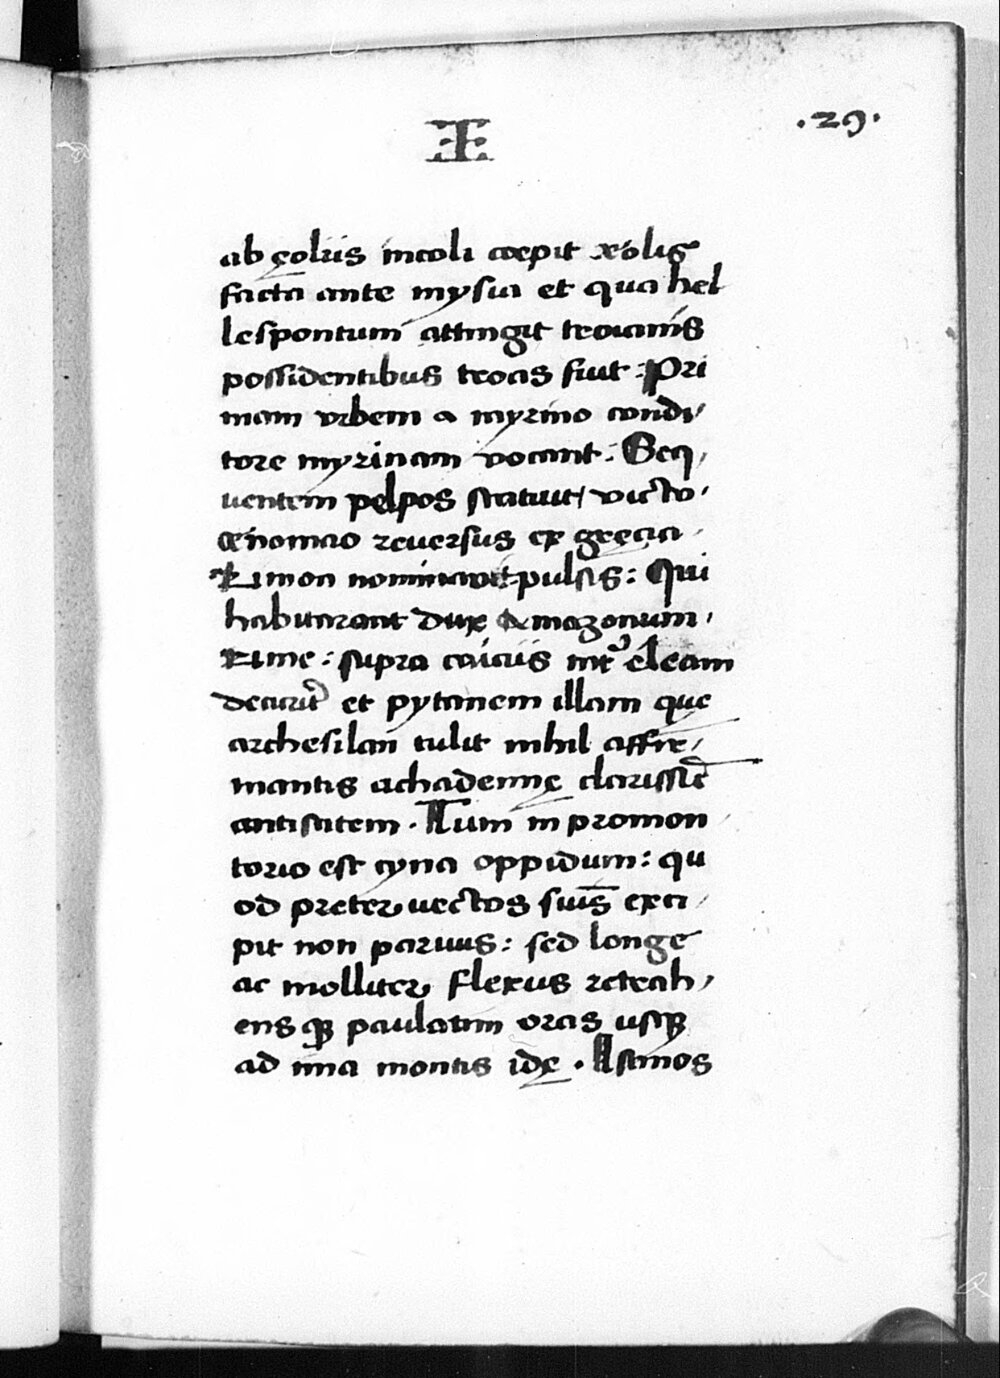 .29.
ab ęoliis incoli coepit æolis
facta ante mysia et qua hel
lespontum attingit troianis
possidentibus troas fiut : Pri
mam vrbem a myrino condi/
tore myrinam vocant : Seq/
uentem pelpos statuit/ victo/
œnomao reuersus ex gręcia /
habitarant dux Amazonum/
Kime : supra caicus int eleam
decurit et pytanem illam que
archesilan tulit nihil affir/
mantis achademię clarissiē
antistitem . Tum in promon
torio est cyna oppidum : qu
od preter uectos suis̄ exci/
pit non paruus : sed longe
ac molliter flexus retrah/
ens qʒ paulatim oras usqʒ
ad ima montis idę . Asinos